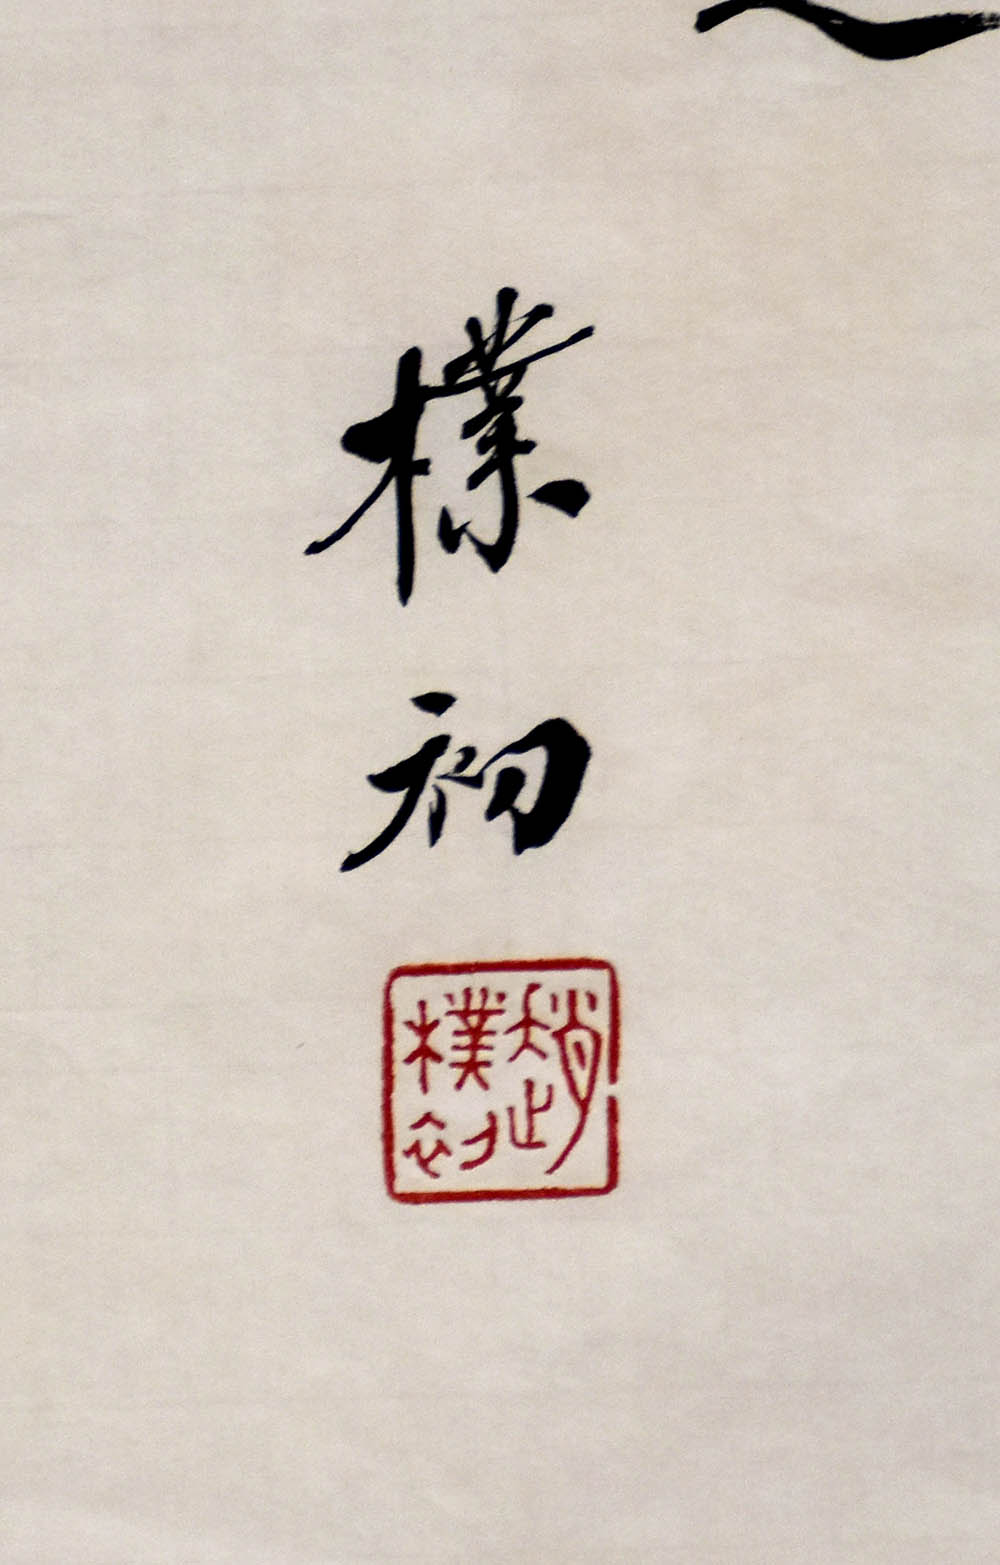 樸初
趙
樸初